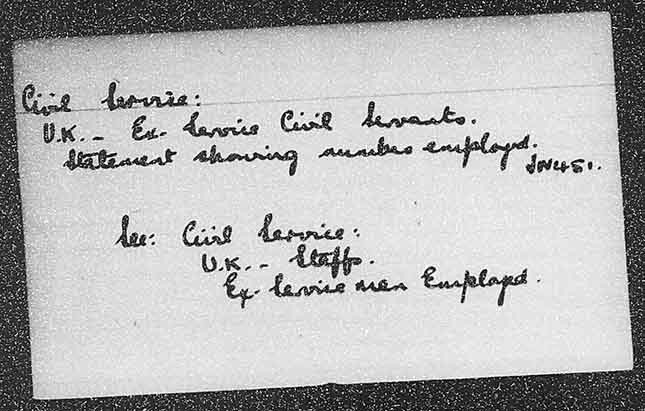 Civil Service:
U.K. - Ex. Service Civil Servants.
Statement showing number employed.
JN451.
See: Civil Service:
U.K. - Staffs.
Ex-Service men Employed.